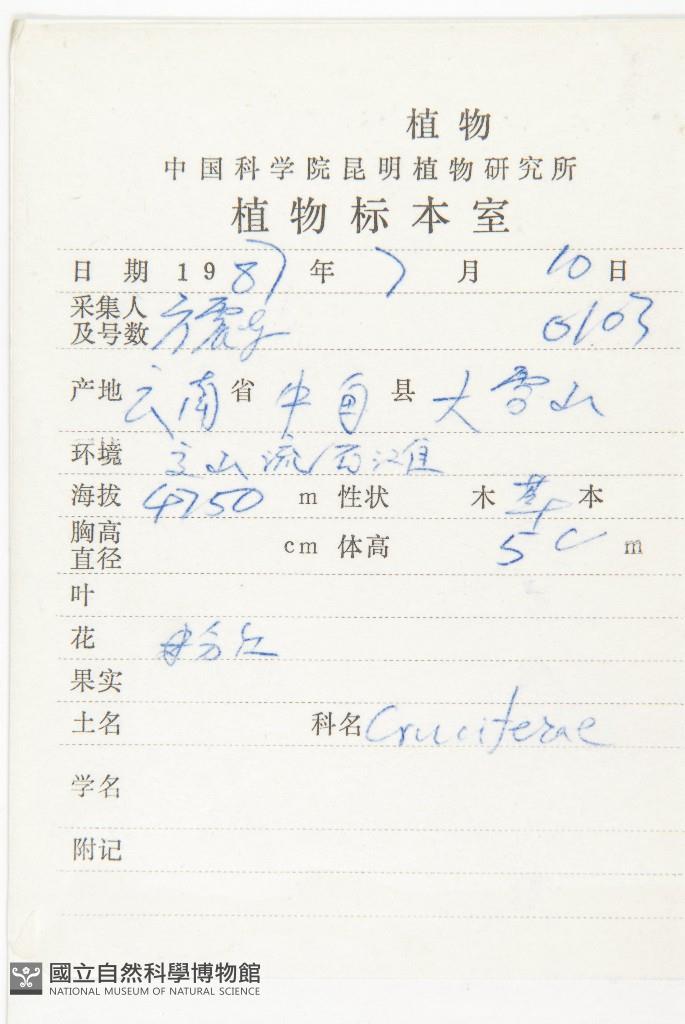 植物
中国科学院昆明植物研究所
植物标本室
日 期 1987年 7 月 10 日
采集人
及号数 方震 0103
产地 云南 省 中甸 县 大雪山
环境 高山流石滩
海拔 4750 m 性状 木 草 本
胸高
直径 cm 体高 5 c m
叶
花 粉红
果实
土名 科名 Cruciferae
学名
附记
國立自然科學博物館
NATIONAL MUSEUM OF NATURAL SCIENCE